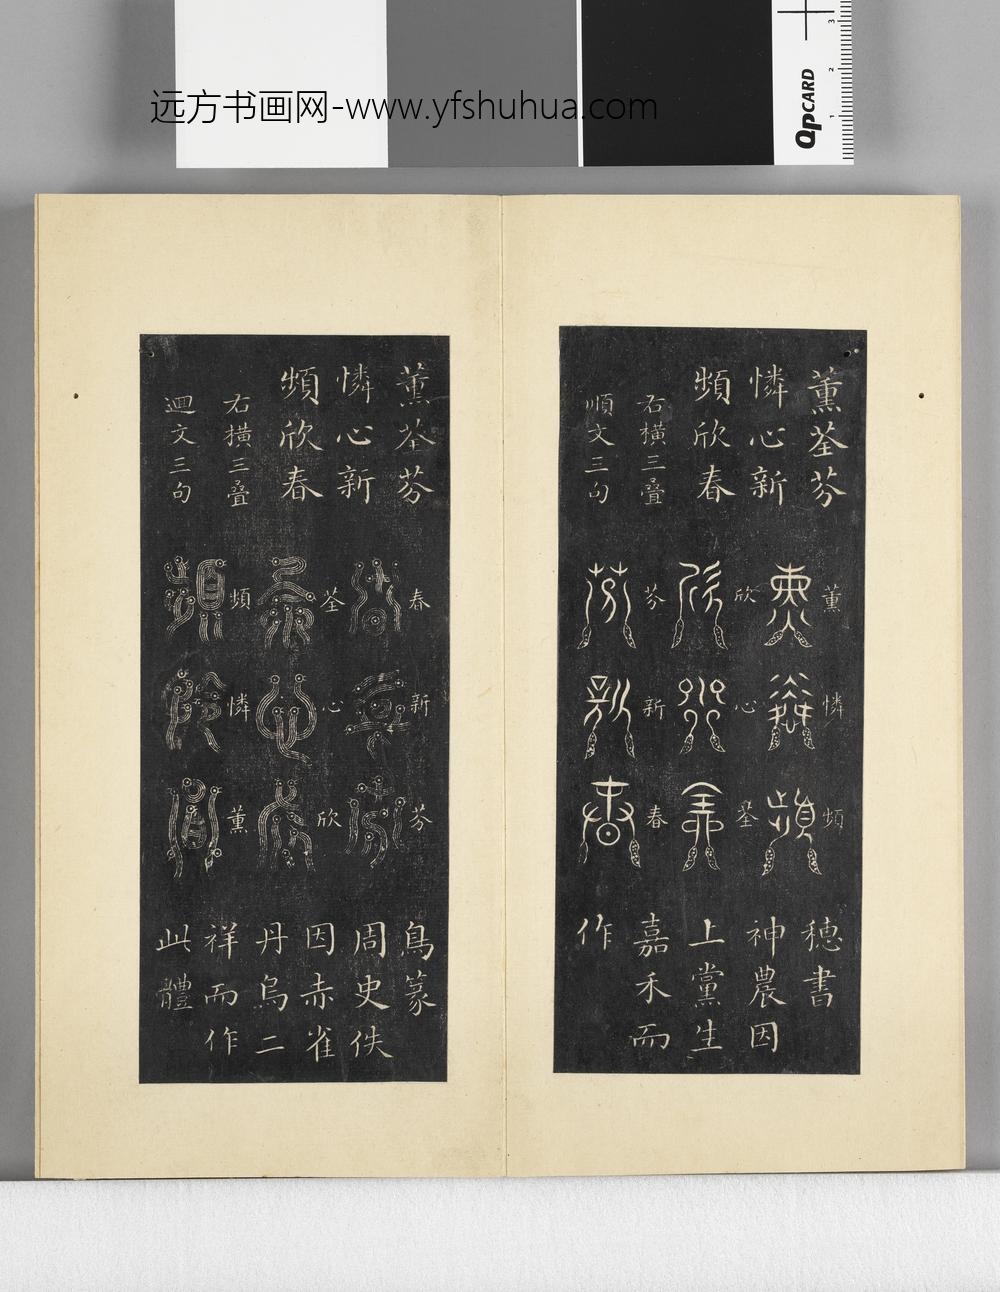 远方书画网-www.yfshuhua.com
QPCARD
1
2
3
薰荃芬
憐心新
頻欣春
右橫三疊
順文三句
薰
憐
頻
欣
心
荃
芬
新
春
穗書
神農因
上黨生
嘉禾而
作
薰荃芬
憐心新
頻欣春
右橫三疊
迴文三句
春
新
芬
荃
心
欣
頻
憐
薰
鳥篆
周史佚
因赤雀
丹烏二
祥而作
此體